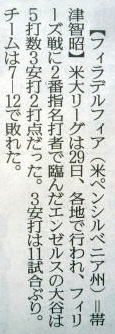 【フィラデルフィア（米ペンシルベニア州）＝帯
津智昭】米大リーグは29日、各地で行われ、フィリ
ーズ戦に2番指名打者で臨んだエンゼルスの大谷は
5打数3安打2打点だった。3安打は11試合ぶり。
チームは7―12で敗れた。